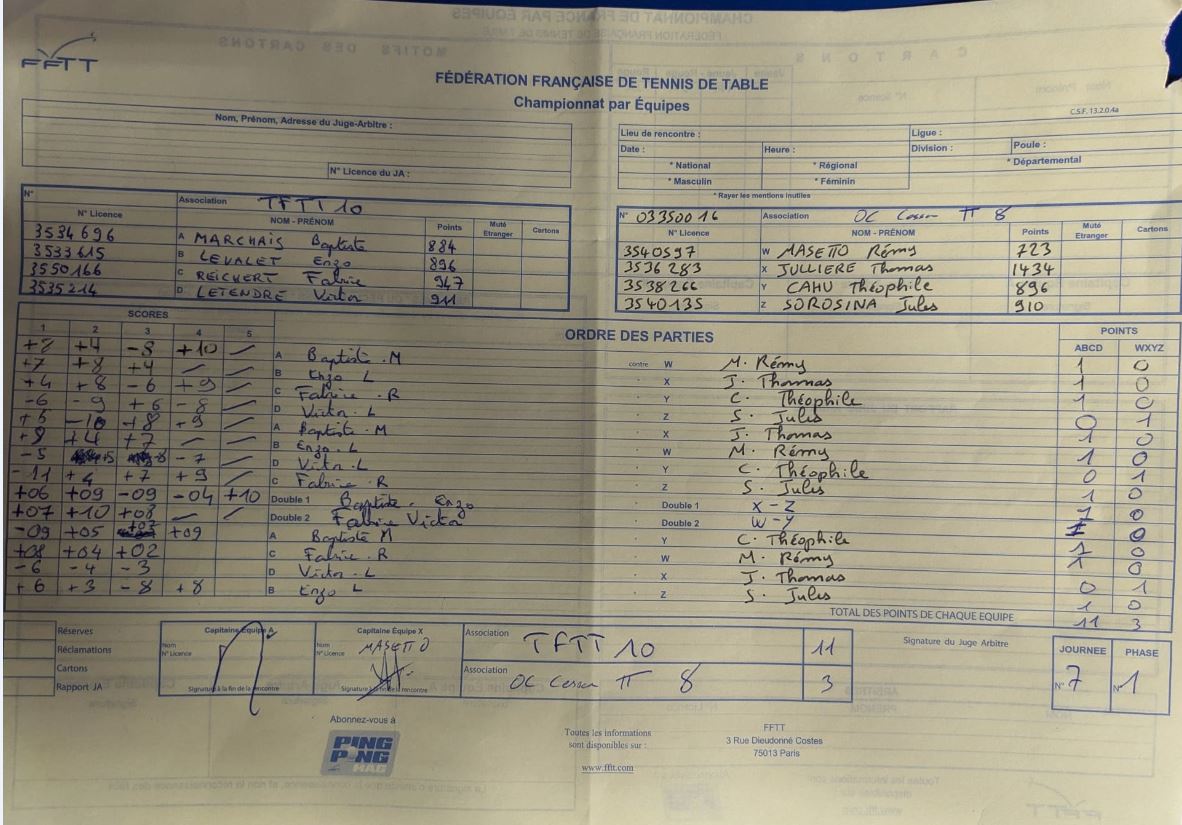 FFTT
FÉDÉRATION FRANÇAISE DE TENNIS DE TABLE
Championnat par Équipes
C.S.F. 13.2.0.4a
Nom, Prénom, Adresse du Juge-Arbitre :
N° Licence du JA :
Lieu de rencontre : Ligue :
Date : Heure : Division : Poule :
* National * Régional * Départemental
* Masculin * Féminin
* Rayer les mentions inutiles
N° Association TFTT 10
N° Licence NOM - PRÉNOM Points Muté Etranger Cartons
3534696 A MARCHAIS Baptiste 884
3533615 B LEVALET Enzo 896
3550166 C REICHERT Fabrice 947
3535214 D LETENDRE Victor 911
N° 03350016 Association OC Cesson TT 8
N° Licence NOM - PRÉNOM Points Muté Etranger Cartons
3540597 W MASETTO Rémy 723
3536283 X JULLIERE Thomas 1434
3538266 Y CAHU Théophile 896
3540135 Z SOROSINA Jules 910
SCORES ORDRE DES PARTIES POINTS
1 2 3 4 5 ABCD WXYZ
+8 +4 -8 +10 — A Baptiste . M contre W M. Rémy 1 0
+7 +8 +4 — — B Enzo L X J. Thomas 1 0
+4 +8 -6 +9 — C Fabrice . R Y C. Théophile 1 0
-6 -9 +6 -8 — D Victor . L Z S. Jules 0 1
+5 -10 +8 +9 — A Baptiste . M X J. Thomas 1 0
+8 +4 +7 — — B Enzo . L W M. Rémy 1 0
-5 +5 -8 -7 — D Victor . L Y C. Théophile 0 1
-11 +4 +7 +9 — C Fabrice . R Z S. Jules 1 0
+06 +09 -09 -04 +10 Double 1 Baptiste . Enzo Double 1 X - Z 1 0
+07 +10 +08 — — Double 2 Fabrice Victor Double 2 W - Y 1 0
-09 +05 +07 +09 A Baptiste M Y C. Théophile 1 0
+08 +04 +02 C Fabrice . R W M. Rémy 1 0
-6 -4 -3 D Victor . L X J. Thomas 0 1
+6 +3 -8 +8 B Enzo L Z S. Jules 1 0
TOTAL DES POINTS DE CHAQUE EQUIPE 11 3
Réserves
Réclamations
Cartons
Rapport JA
Capitaine Équipe A
Nom
N° Licence
Signature à la fin de la rencontre
Capitaine Équipe X
Nom MASETTO
N° Licence
Signature à la fin de la rencontre
Association TFTT 10 11
Association OC Cesson TT 8 3
Signature du Juge Arbitre
JOURNEE PHASE
N° 7 N° 1
Abonnez-vous à
PING PONG MAG
Toutes les informations
sont disponibles sur :
www.fftt.com
FFTT
3 Rue Dieudonné Costes
75013 Paris